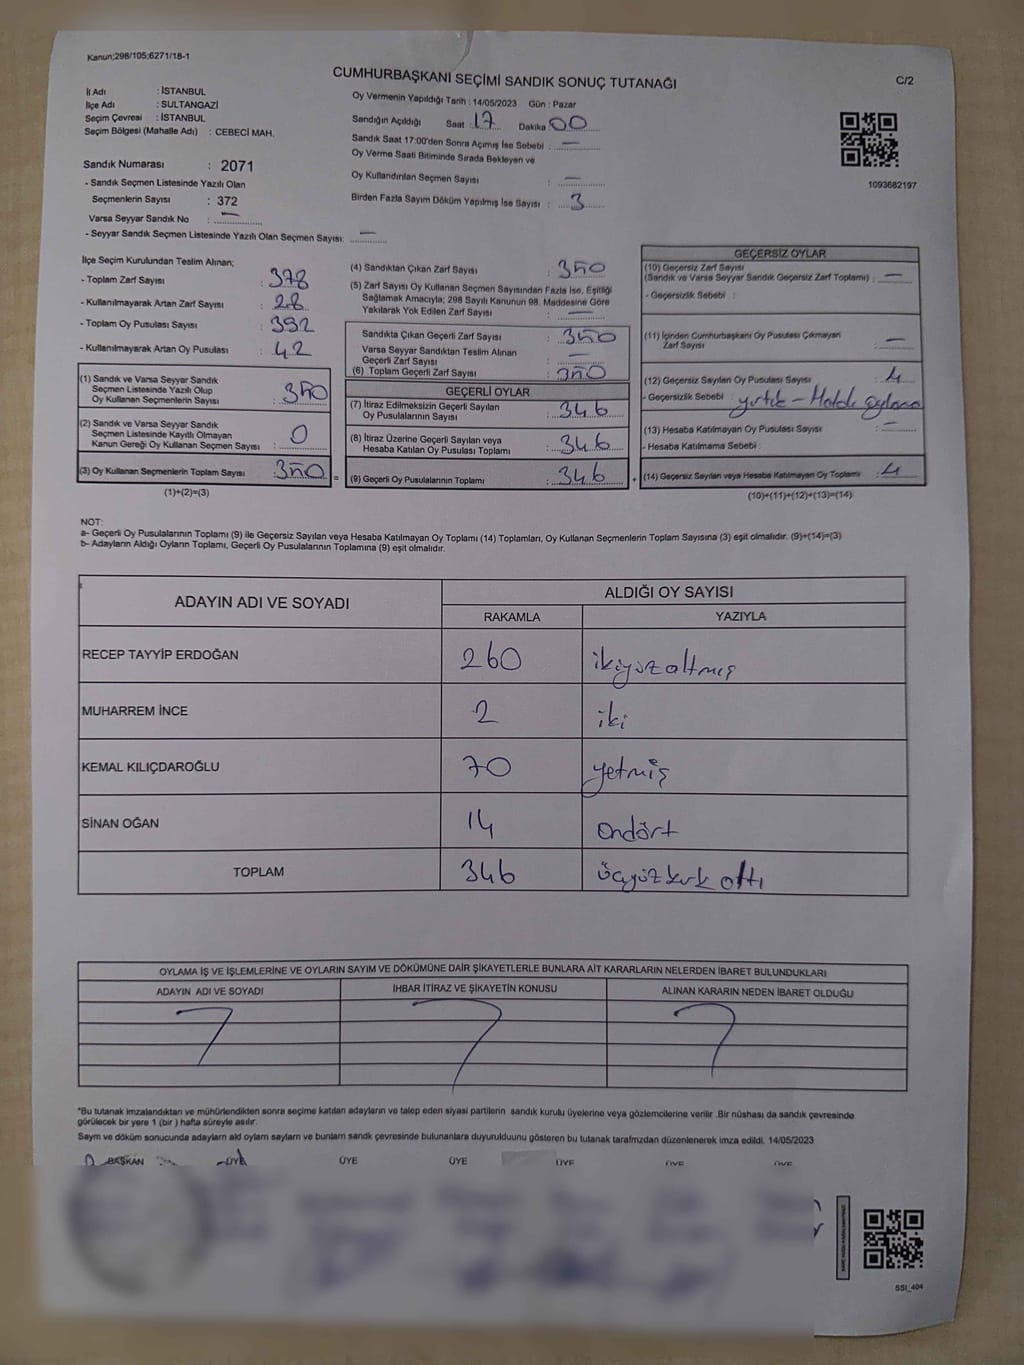 Kanun;298/105;6271/18-1
CUMHURBAŞKANI SEÇİMİ SANDIK SONUÇ TUTANAĞI
C/2
İl Adı : İSTANBUL
İlçe Adı : SULTANGAZİ
Seçim Çevresi : İSTANBUL
Seçim Bölgesi (Mahalle Adı) : CEBECİ MAH.
Sandık Numarası : 2071
- Sandık Seçmen Listesinde Yazılı Olan
Seçmenlerin Sayısı : 372
Varsa Seyyar Sandık No : —
- Seyyar Sandık Seçmen Listesinde Yazılı Olan Seçmen Sayısı: —
Oy Vermenin Yapıldığı Tarih : 14/05/2023 Gün : Pazar
Sandığın Açıldığı Saat : 17 Dakika : 00
Sandık Saat 17:00'den Sonra Açımış İse Sebebi : —
Oy Verme Saati Bitiminde Sırada Bekleyen ve
Oy Kullandırılan Seçmen Sayısı : —
Birden Fazla Sayım Döküm Yapılmış İse Sayısı : 3
1093682197
İlçe Seçim Kurulundan Teslim Alınan;
- Toplam Zarf Sayısı : 378
- Kullanılmayarak Artan Zarf Sayısı : 28
- Toplam Oy Pusulası Sayısı : 392
- Kullanılmayarak Artan Oy Pusulası : 42
(1) Sandık ve Varsa Seyyar Sandık
Seçmen Listesinde Yazılı Olup
Oy Kullanan Seçmenlerin Sayısı : 350
(2) Sandık ve Varsa Seyyar Sandık
Seçmen Listesinde Kayıtlı Olmayan
Kanun Gereği Oy Kullanan Seçmen Sayısı : 0
(3) Oy Kullanan Seçmenlerin Toplam Sayısı : 350
(1)+(2)=(3)
(4) Sandıktan Çıkan Zarf Sayısı : 350
(5) Zarf Sayısı Oy Kullanan Seçmen Sayısından Fazla İse, Eşitliği
Sağlamak Amacıyla; 298 Sayılı Kanunun 98. Maddesine Göre
Yakılarak Yok Edilen Zarf Sayısı : —
Sandıkta Çıkan Geçerli Zarf Sayısı : 350
Varsa Seyyar Sandıktan Teslim Alınan
Geçerli Zarf Sayısı : —
(6) Toplam Geçerli Zarf Sayısı : 350
GEÇERLİ OYLAR
(7) İtiraz Edilmeksizin Geçerli Sayılan
Oy Pusulalarının Sayısı : 346
(8) İtiraz Üzerine Geçerli Sayılan veya
Hesaba Katılan Oy Pusulası Toplamı : 346
(9) Geçerli Oy Pusulalarının Toplamı : 346
GEÇERSİZ OYLAR
(10) Geçersiz Zarf Sayısı
(Sandık ve Varsa Seyyar Sandık Geçersiz Zarf Toplamı) : —
- Geçersizlik Sebebi :
(11) İçinden Cumhurbaşkanı Oy Pusulası Çıkmayan
Zarf Sayısı : —
(12) Geçersiz Sayılan Oy Pusulası Sayısı : 4
- Geçersizlik Sebebi : yırtık - Hatalı oylama
(13) Hesaba Katılmayan Oy Pusulası Sayısı : —
- Hesaba Katılmama Sebebi :
(14) Geçersiz Sayılan veya Hesaba Katılmayan Oy Toplamı : 4
(10)+(11)+(12)+(13)=(14)
NOT:
a- Geçerli Oy Pusulalarının Toplamı (9) ile Geçersiz Sayılan veya Hesaba Katılmayan Oy Toplamı (14) Toplamları, Oy Kullanan Seçmenlerin Toplam Sayısına (3) eşit olmalıdır. (9)+(14)=(3)
b- Adayların Aldığı Oyların Toplamı, Geçerli Oy Pusulalarının Toplamına (9) eşit olmalıdır.
ADAYIN ADI VE SOYADI
ALDIĞI OY SAYISI
RAKAMLA YAZIYLA
RECEP TAYYİP ERDOĞAN 260 ikiyüzaltmış
MUHARREM İNCE 2 iki
KEMAL KILIÇDAROĞLU 70 yetmiş
SİNAN OĞAN 14 ondört
TOPLAM 346 üçyüz kırk altı
OYLAMA İŞ VE İŞLEMLERİNE VE OYLARIN SAYIM VE DÖKÜMÜNE DAİR ŞİKAYETLERLE BUNLARA AİT KARARLARIN NELERDEN İBARET BULUNDUKLARI
ADAYIN ADI VE SOYADI İHBAR İTİRAZ VE ŞİKAYETİN KONUSU ALINAN KARARIN NEDEN İBARET OLDUĞU
*Bu tutanak imzalandıktan ve mühürlendikten sonra seçime katılan adayların ve talep eden siyasi partilerin sandık kurulu üyelerine veya gözlemcilerine verilir .Bir nüshası da sandık çevresinde
görülecek bir yere 1 (bir ) hafta süreyle asılır.
Sayım ve döküm sonucunda adayların ald oyların sayların ve bunların sandk çevresinde bulunanlara duyurulduunu gösteren bu tutanak tarafmzdan düzenlenerek imza edildi. 14/05/2023
BAŞKAN ÜYE ÜYE ÜYE ÜYE ÜYE ÜYE
SSI_404